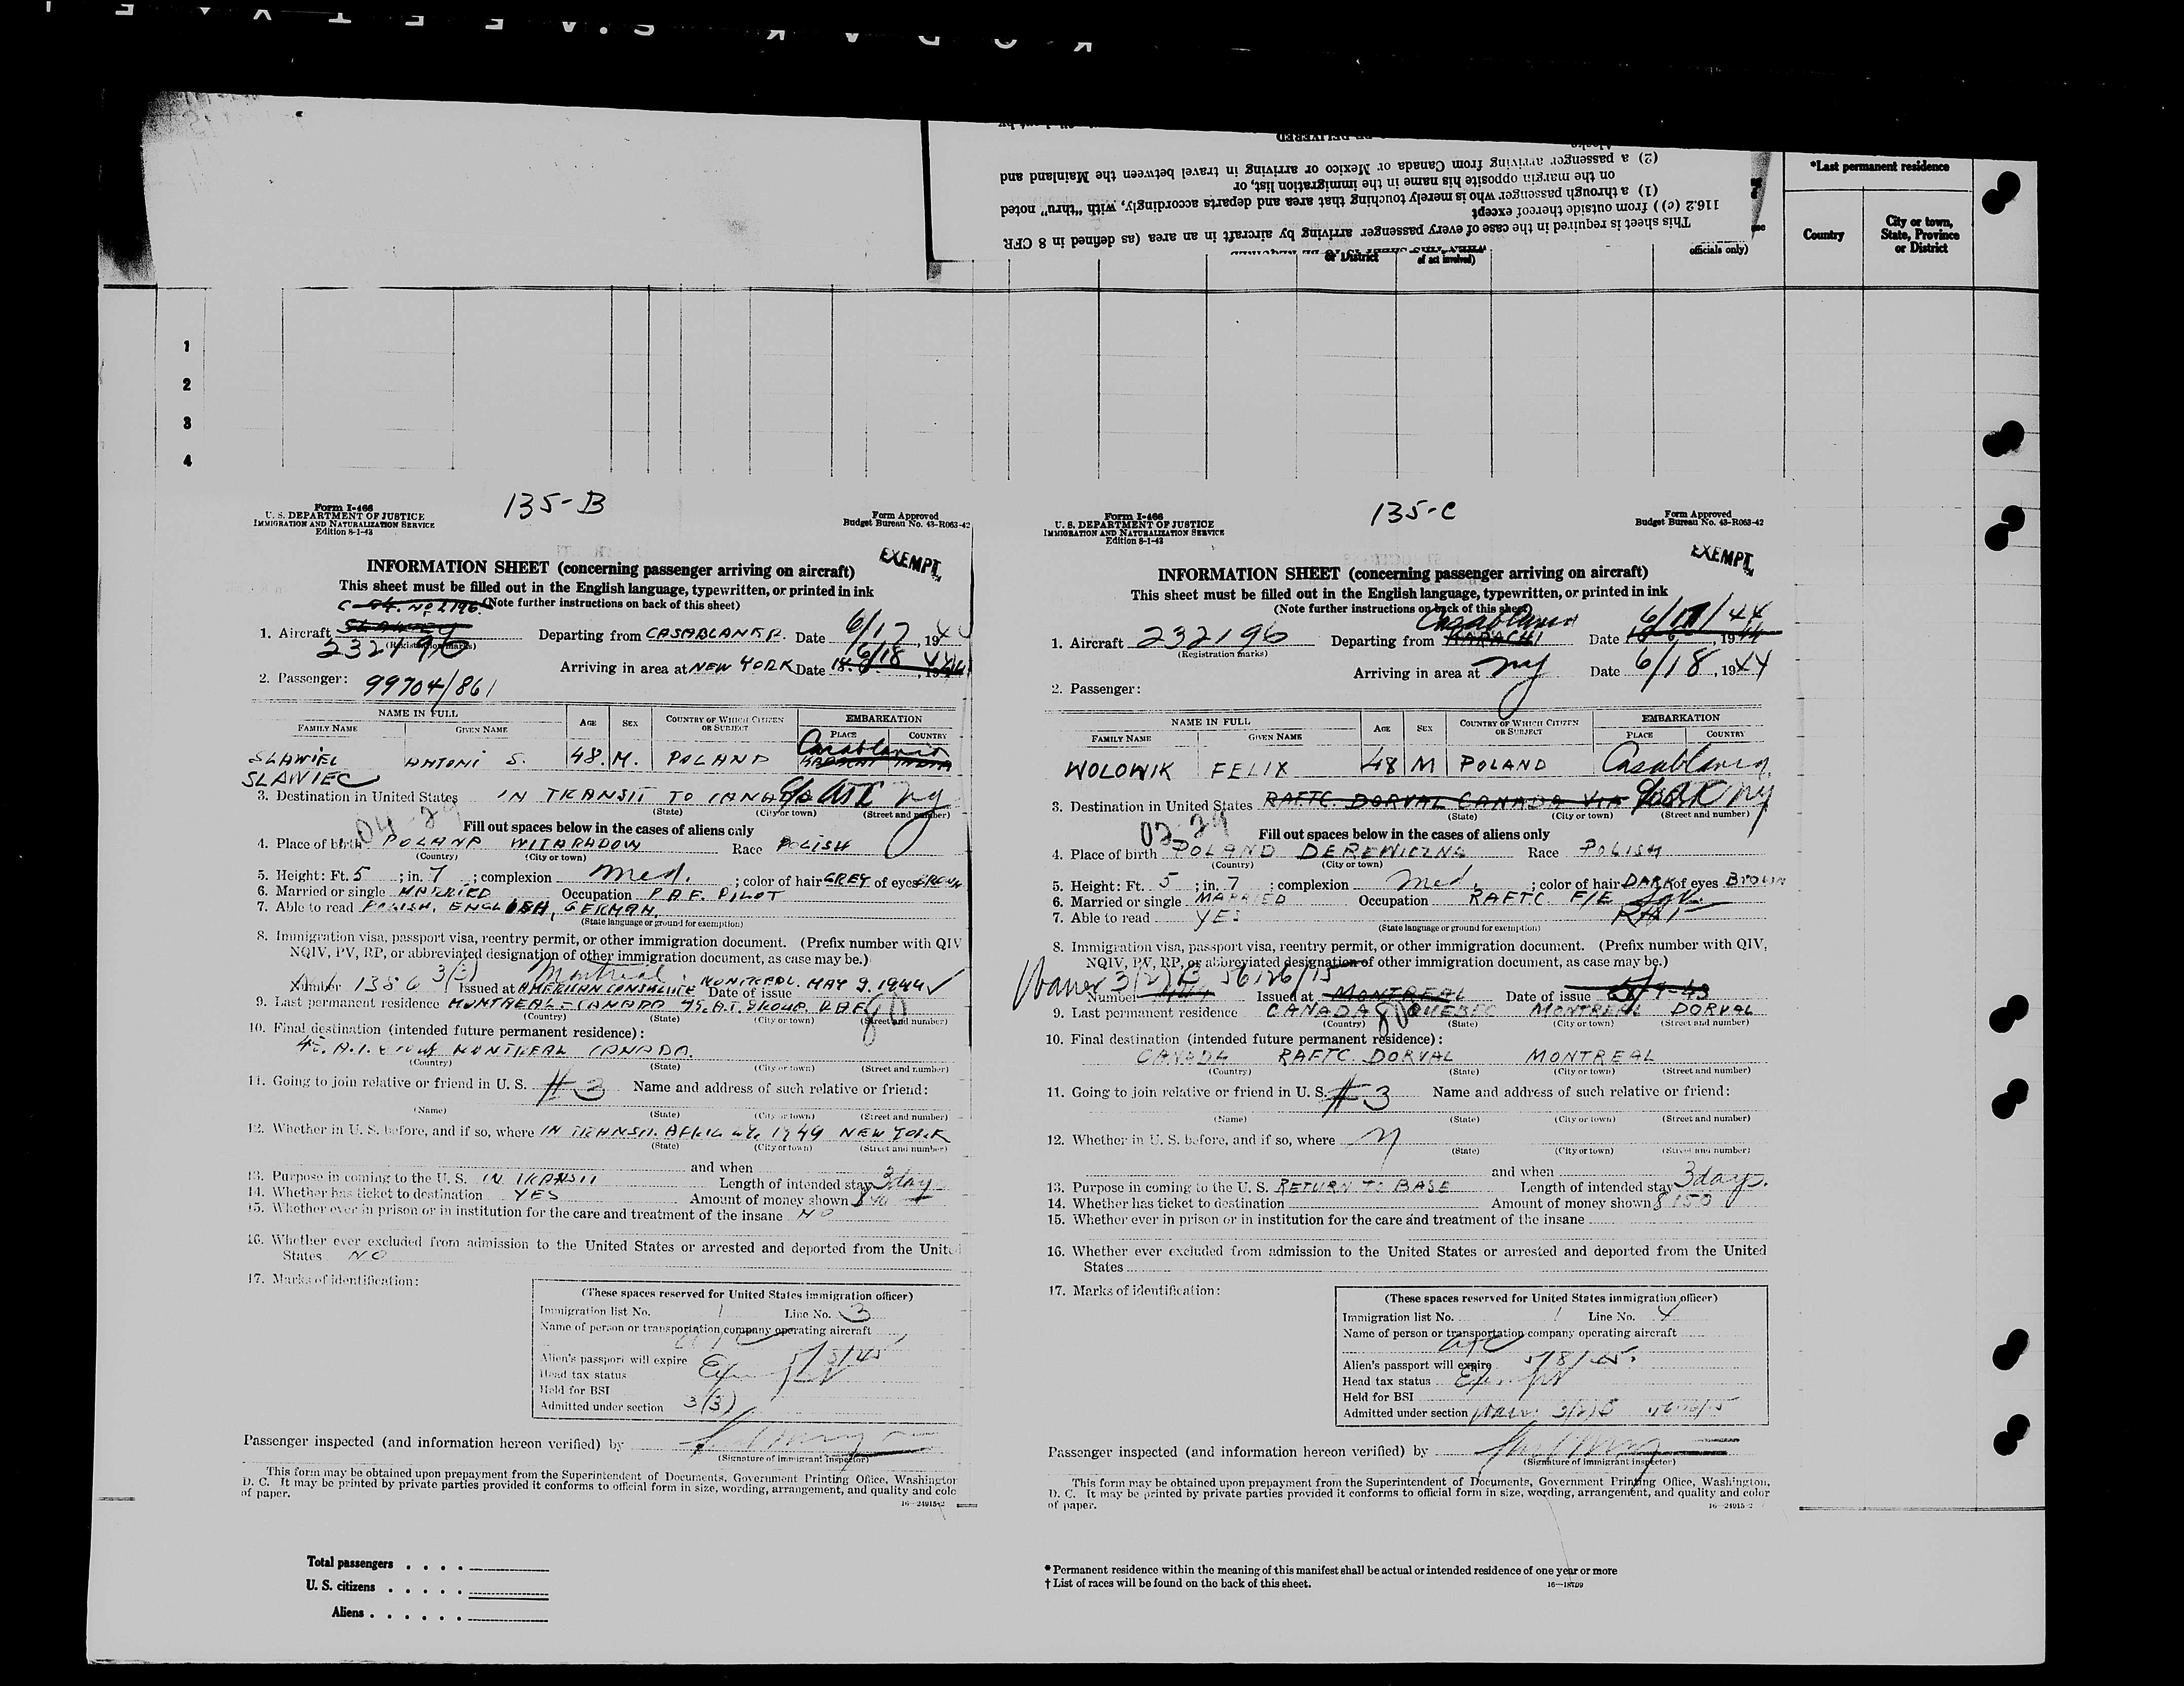 KODAK S.AFETY
*Last permanent residence
Country
City or town,
State, Province
or District
This sheet is required in the case of every passenger arriving by aircraft in an area (as defined in 8 CFR
116.2 (c)) from outside thereof except
(1) a through passenger who is merely touching that area and departs accordingly, with "thru" noted
on the margin opposite his name in the immigration list, or
(2) a passenger arriving from Canada or Mexico or arriving in travel between the Mainland and
or District
of act involved)
officials only)
1
2
3
4
135-B
Form I-466
U. S. DEPARTMENT OF JUSTICE
IMMIGRATION AND NATURALIZATION SERVICE
Edition 8-1-43
Form Approved
Budget Bureau No. 43-R063-42
EXEMPT
INFORMATION SHEET (concerning passenger arriving on aircraft)
This sheet must be filled out in the English language, typewritten, or printed in ink
(Note further instructions on back of this sheet)
1. Aircraft 232196 Departing from CASABLANKA Date 6/17, 1944
(Registration marks)
Arriving in area at NEW YORK Date 6/18 44
2. Passenger: 99704/861
NAME IN FULL AGE SEX COUNTRY OF WHICH CITIZEN OR SUBJECT EMBARKATION
FAMILY NAME GIVEN NAME PLACE COUNTRY
SLAWIEC ANTONI S. 48. M. POLAND Casablanca
SLAWIEC
3. Destination in United States IN TRANSIT TO CANADA c/o ATC NY
(State) (City or town) (Street and number)
04-29
Fill out spaces below in the cases of aliens only
4. Place of birth POLAND WITARADOW Race POLISH
(Country) (City or town)
5. Height: Ft. 5; in. 7; complexion Med.; color of hair GREY of eyes BROWN
6. Married or single MARRIED Occupation P.A.F. PILOT
7. Able to read POLISH, ENGLISH, GERMAN,
(State language or ground for exemption)
8. Immigration visa, passport visa, reentry permit, or other immigration document. (Prefix number with QIV
NQIV, PV, RP, or abbreviated designation of other immigration document, as case may be.)
3(3) Montreal
Number 1386 Issued at AMERICAN CONSULATE MONTREAL Date of issue MAY 9. 1944
9. Last permanent residence MONTREAL - CANADA 45. A.T. GROUP. RAF 80
(Country) (State) (City or town) (Street and number)
10. Final destination (intended future permanent residence):
45. A.T. Group MONTREAL CANADA.
(Country) (State) (City or town) (Street and number)
11. Going to join relative or friend in U. S. #3 Name and address of such relative or friend:
(Name) (State) (City or town) (Street and number)
12. Whether in U. S. before, and if so, where IN TRANSIT. APRIL 1944 NEW YORK
(State) (City or town) (Street and number)
and when
13. Purpose in coming to the U. S. IN TRANSIT Length of intended stay 3 day
14. Whether has ticket to destination YES Amount of money shown
15. Whether ever in prison or in institution for the care and treatment of the insane NO
16. Whether ever excluded from admission to the United States or arrested and deported from the United
States NO
17. Marks of identification:
(These spaces reserved for United States immigration officer)
Immigration list No. 1 Line No. 3
Name of person or transportation company operating aircraft
ATC
Alien's passport will expire 5/8/45
Head tax status Exempt
Held for BSI
Admitted under section 3(3)
Passenger inspected (and information hereon verified) by
(Signature of immigrant inspector)
This form may be obtained upon prepayment from the Superintendent of Documents, Government Printing Office, Washington
D. C. It may be printed by private parties provided it conforms to official form in size, wording, arrangement, and quality and colo
of paper.
16-24915-2
Total passengers
U. S. citizens
Aliens
135-C
Form I-466
U. S. DEPARTMENT OF JUSTICE
IMMIGRATION AND NATURALIZATION SERVICE
Edition 8-1-43
Form Approved
Budget Bureau No. 43-R063-42
EXEMPT
INFORMATION SHEET (concerning passenger arriving on aircraft)
This sheet must be filled out in the English language, typewritten, or printed in ink
(Note further instructions on back of this sheet)
1. Aircraft 232196 Departing from Casablanca KARACHI Date 6/17/44
(Registration marks)
Arriving in area at NY Date 6/18, 1944
2. Passenger:
NAME IN FULL AGE SEX COUNTRY OF WHICH CITIZEN OR SUBJECT EMBARKATION
FAMILY NAME GIVEN NAME PLACE COUNTRY
WOLOWIK FELIX 48 M POLAND Casablanca
3. Destination in United States RAFTC. DORVAL CANADA VIA NY
(State) (City or town) (Street and number)
02-29
Fill out spaces below in the cases of aliens only
4. Place of birth POLAND DEREWICZNA Race POLISH
(Country) (City or town)
5. Height: Ft. 5; in. 7; complexion Med.; color of hair DARK of eyes BROWN
6. Married or single MARRIED Occupation RAFTC F/E
7. Able to read YES
(State language or ground for exemption)
8. Immigration visa, passport visa, reentry permit, or other immigration document. (Prefix number with QIV,
NQIV, PV, RP, or abbreviated designation of other immigration document, as case may be.)
Waver 3(2)B 56126/15
Number Issued at MONTREAL Date of issue
9. Last permanent residence CANADA 80 QUEBEC MONTREAL DORVAL
(Country) (State) (City or town) (Street and number)
10. Final destination (intended future permanent residence):
CANADA RAFTC. DORVAL MONTREAL
(Country) (State) (City or town) (Street and number)
11. Going to join relative or friend in U. S. #3 Name and address of such relative or friend:
(Name) (State) (City or town) (Street and number)
12. Whether in U. S. before, and if so, where N
(State) (City or town) (Street and number)
and when
13. Purpose in coming to the U. S. RETURN TO BASE Length of intended stay 3 days.
14. Whether has ticket to destination Amount of money shown $150
15. Whether ever in prison or in institution for the care and treatment of the insane
16. Whether ever excluded from admission to the United States or arrested and deported from the United
States
17. Marks of identification:
(These spaces reserved for United States immigration officer)
Immigration list No. 1 Line No. 4
Name of person or transportation company operating aircraft
ATC
Alien's passport will expire 5/8/45.
Head tax status Exempt
Held for BSI
Admitted under section
Passenger inspected (and information hereon verified) by
(Signature of immigrant inspector)
This form may be obtained upon prepayment from the Superintendent of Documents, Government Printing Office, Washington,
D. C. It may be printed by private parties provided it conforms to official form in size, wording, arrangement, and quality and color
of paper.
16-24915-2
* Permanent residence within the meaning of this manifest shall be actual or intended residence of one year or more
† List of races will be found on the back of this sheet.